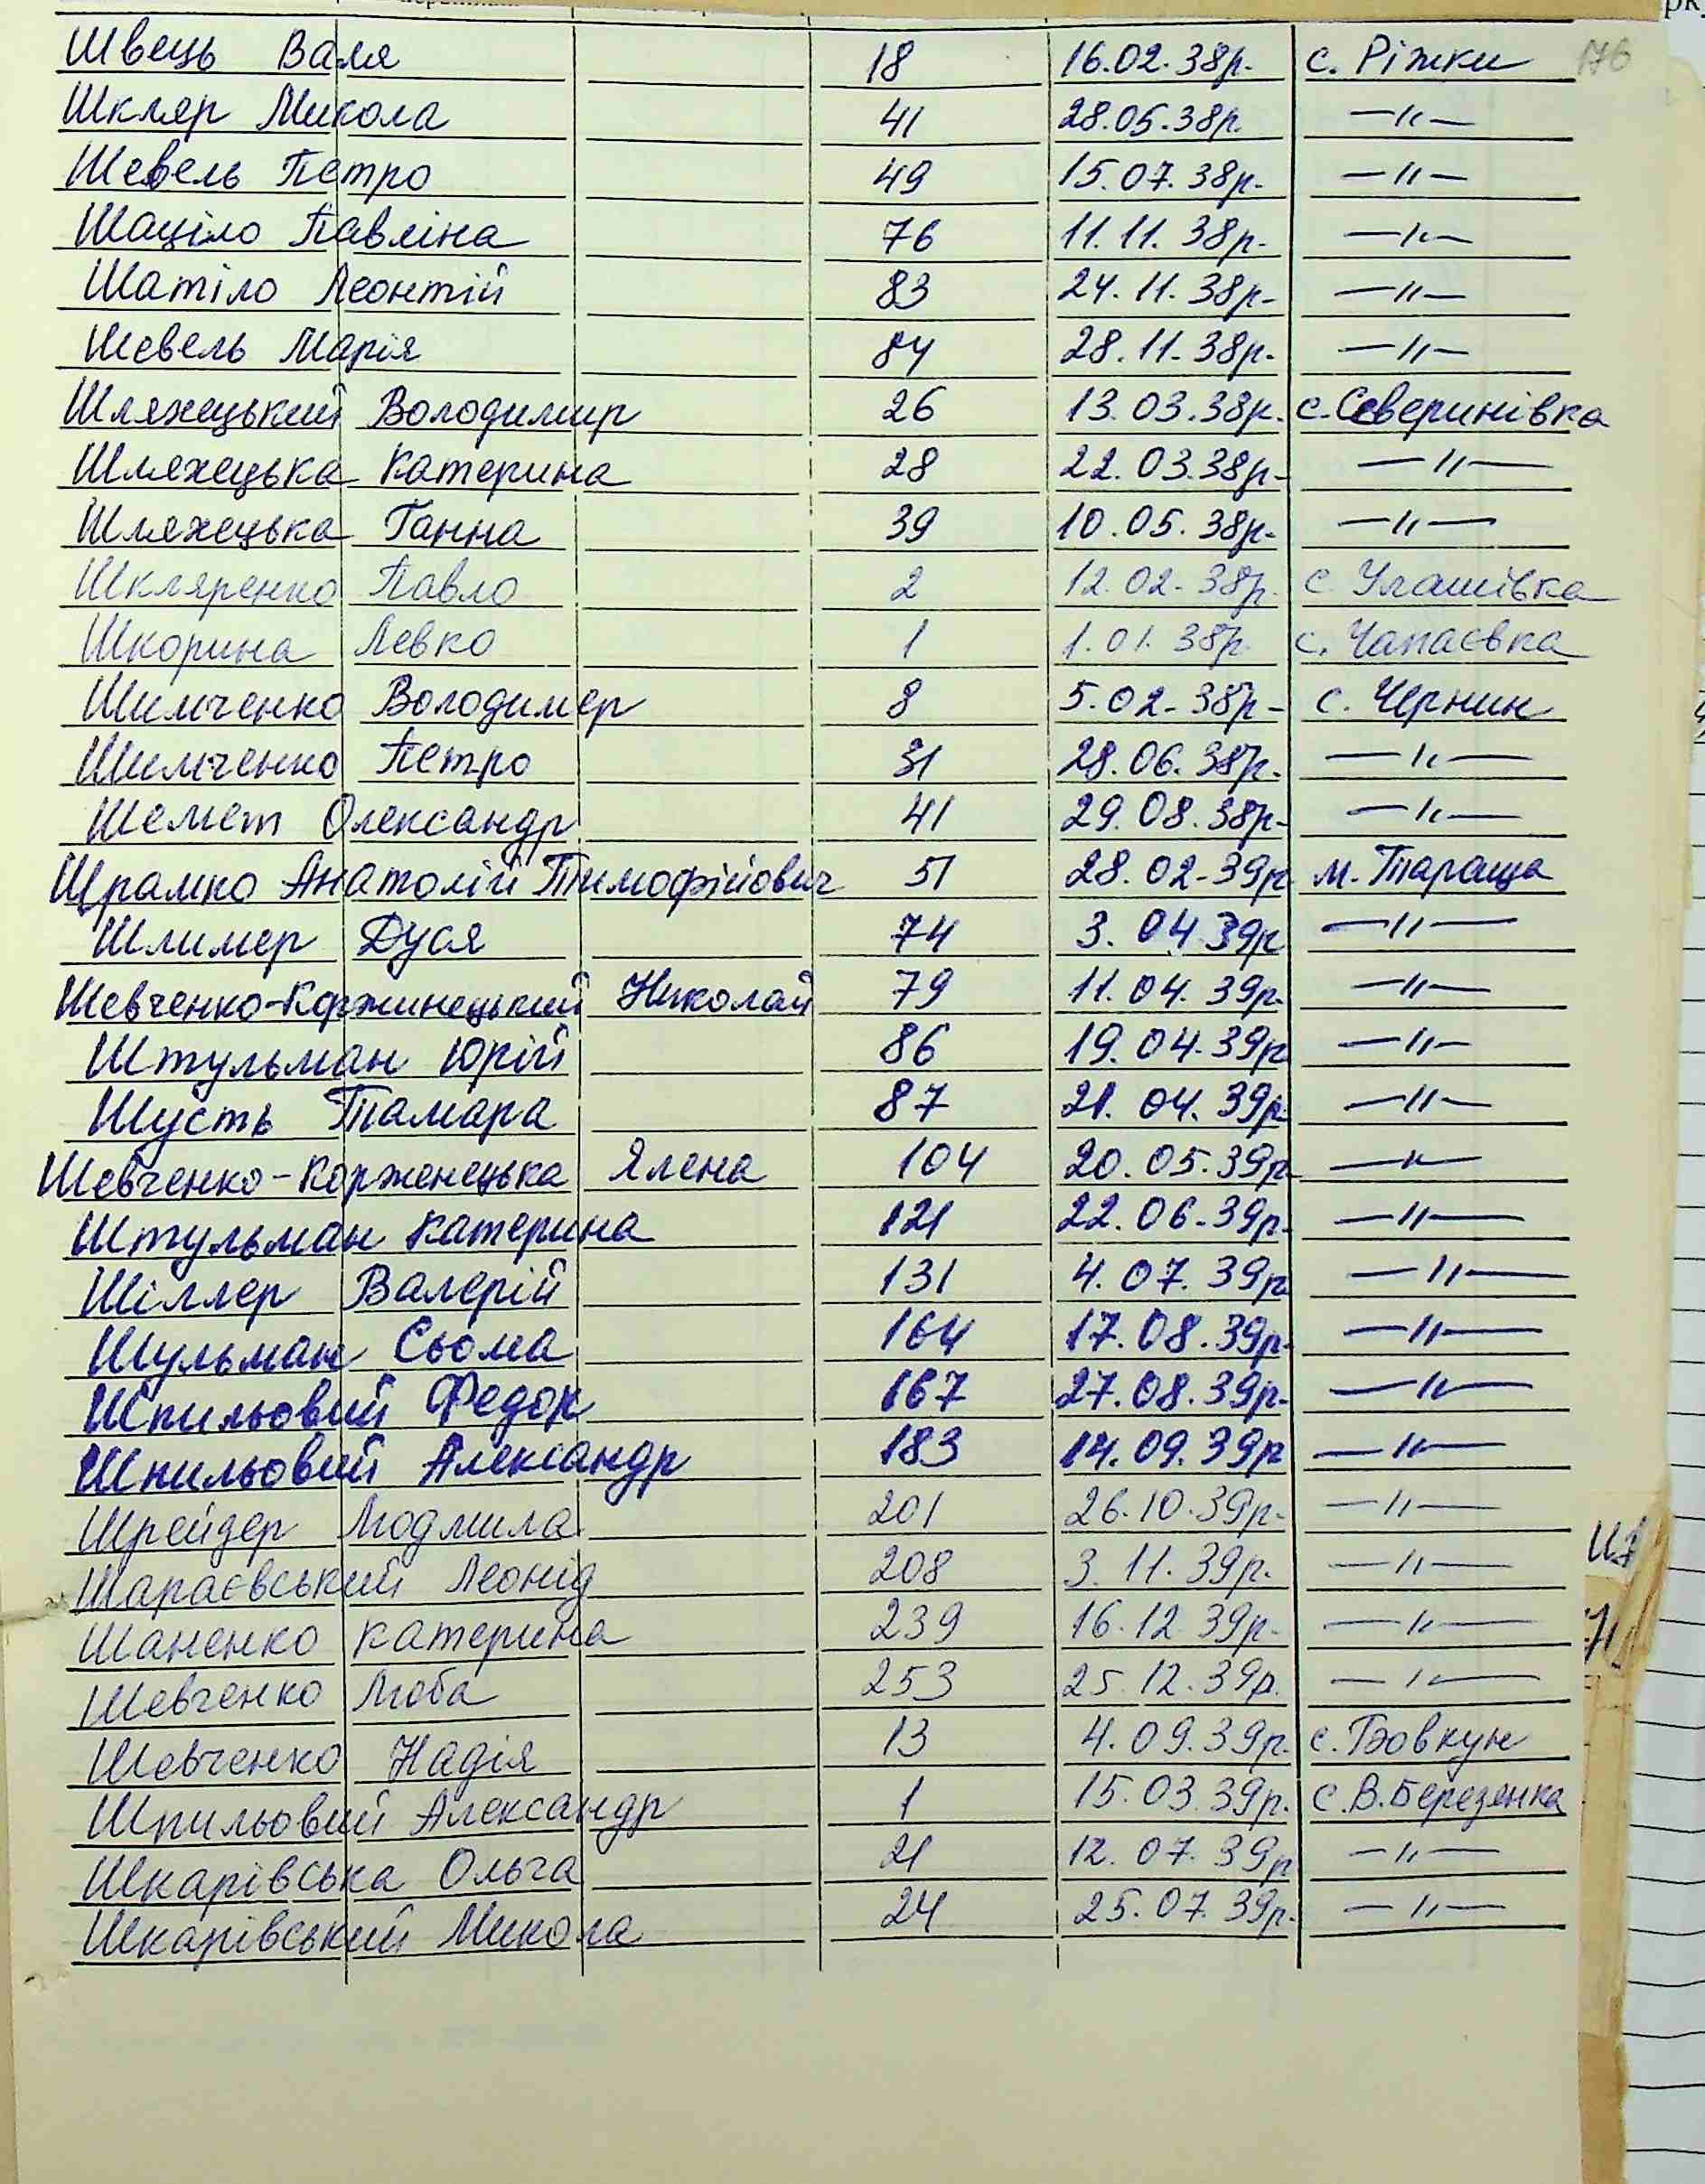 176
Швець Валя 18 16.02.38р. с. Ріжки
Шкляр Микола 41 28.05.38р. —"—
Шевель Петро 49 15.07.38р. —"—
Шаціло Павліна 76 11.11.38р. —"—
Шатіло Леонтій 83 24.11.38р. —"—
Шевель Марія 84 28.11.38р. —"—
Шляхецький Володимир 26 13.03.38р. с. Северинівка
Шляхецька Катерина 28 22.03.38р. —"—
Шляхецька Ганна 39 10.05.38р. —"—
Шкляренко Павло 2 12.02.38р. с. Улашівка
Шкорина Левко 1 1.01.38р. с. Чапаєвка
Шимченко Володимер 8 5.02.38р. с. Чернин
Шимченко Петро 31 28.06.38р. —"—
Шемет Олександр 41 29.08.38р. —"—
Шрамко Анатолій Тимофійович 51 28.02.39р. м. Тараща
Шлимер Дуся 74 3.04.39р. —"—
Шевченко-Коржинецький Николай 79 11.04.39р. —"—
Штульман Юрій 86 19.04.39р. —"—
Шусть Тамара 87 21.04.39р. —"—
Шевченко-Корженецька Ялена 104 20.05.39р. —"—
Штульман Катерина 121 22.06.39р. —"—
Шіллер Валерій 131 4.07.39р. —"—
Шульман Сьома 164 17.08.39р. —"—
Шпильовий Федор 167 27.08.39р. —"—
Шпильовий Александр 183 14.09.39р. —"—
Шрейдер Людмила 201 26.10.39р. —"—
Шараєвський Леонід 208 3.11.39р. —"—
Шаненко Катерина 239 16.12.39р. —"—
Шевченко Люба 253 25.12.39р. —"—
Шевченко Надія 13 4.09.39р. с. Бовкун
Шпильовий Александр 1 15.03.39р. с. В. Березянка
Шкарівська Ольга 21 12.07.39р. —"—
Шкарівський Микола 24 25.07.39р. —"—